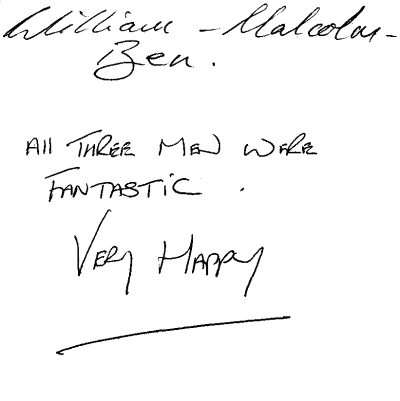 William - Malcolm -
Ben.
All THREE MEN WERE
FANTASTIC.
VERY HAPPY